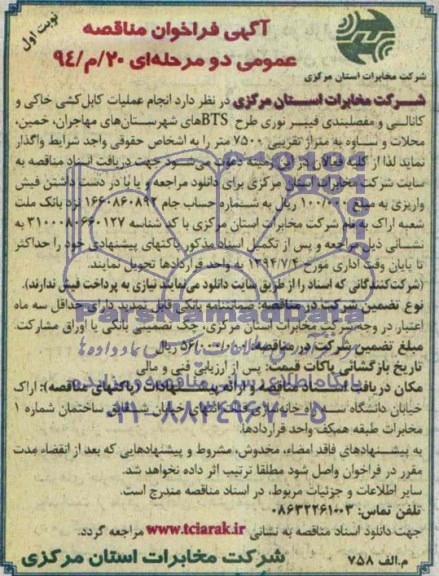 آگهی فراخوان مناقصه
عمومی دو مرحله‌ای ۲۰/م/۹۴
نوبت اول
شرکت مخابرات استان مرکزی
شرکت مخابرات استان مرکزی در نظر دارد انجام عملیات کابل‌کشی خاکی و
کانالی و مفصلبندی فیبر نوری طرح BTSهای شهرستان‌های مهاجران، خمین،
محلات و ساوه به متراژ تقریبی ۷۵۰۰ متر را به اشخاص حقوقی واجد شرایط واگذار
نماید لذا از کلیه فعالان در این زمینه دعوت می‌شود جهت دریافت اسناد مناقصه به
سایت شرکت مخابرات استان مرکزی برای دانلود مراجعه و یا با در دست داشتن فیش
واریزی به مبلغ ۱۰۰/۰۰۰ ریال به شماره حساب جام ۱۶۶۰۸۶۰۸۹۲ نزد بانک ملت
شعبه اراک به نام شرکت مخابرات استان مرکزی با کد شناسه ۳۱۰۰۰۸۰۶۶۰۱۲۷ به
نشانی ذیل مراجعه و پس از تکمیل اسناد مذکور پاکتهای پیشنهادی خود را حداکثر
تا پایان وقت اداری مورخ ۱۳۹۴/۷/۴ به واحد قراردادها تحویل نمایند.
(شرکت‌کنندگانی که اسناد را از طریق سایت دانلود می‌نمایند نیازی به پرداخت فیش ندارند).
نوع تضمین شرکت در مناقصه: ضمانتنامه بانکی قابل تمدید دارای حداقل سه ماه
اعتبار در وجه شرکت مخابرات استان مرکزی، چک تضمینی بانکی یا اوراق مشارکت.
مبلغ تضمین شرکت در مناقصه: ریال
تاریخ بازگشائی پاکات قیمت: پس از ارزیابی فنی و مالی
مکان دریافت اسناد مناقصه و ارائه پیشنهادات (پاکتهای مناقصه): اراک
خیابان دانشگاه سه راه خانه‌سازی قنات انتهای خیابان شقایق ساختمان شماره ۱
مخابرات طبقه همکف واحد قراردادها.
به پیشنهادهای فاقد امضاء، مخدوش، مشروط و پیشنهادهایی که بعد از انقضاء مدت
مقرر در فراخوان واصل شود مطلقا ترتیب اثر داده نخواهد شد.
سایر اطلاعات و جزئیات مربوط، در اسناد مناقصه مندرج است.
تلفن تماس: ۰۸۶۳۲۲۶۱۰۰۳
جهت دانلود اسناد مناقصه به نشانی www.tciarak.ir مراجعه گردد.
م.الف ۷۵۸
شرکت مخابرات استان مرکزی
ParsNamadData
پایگاه اطلاع رسانی مناقصه و مزایده
۰۲۱-۸۸۳۴۹۶۷۰-۵